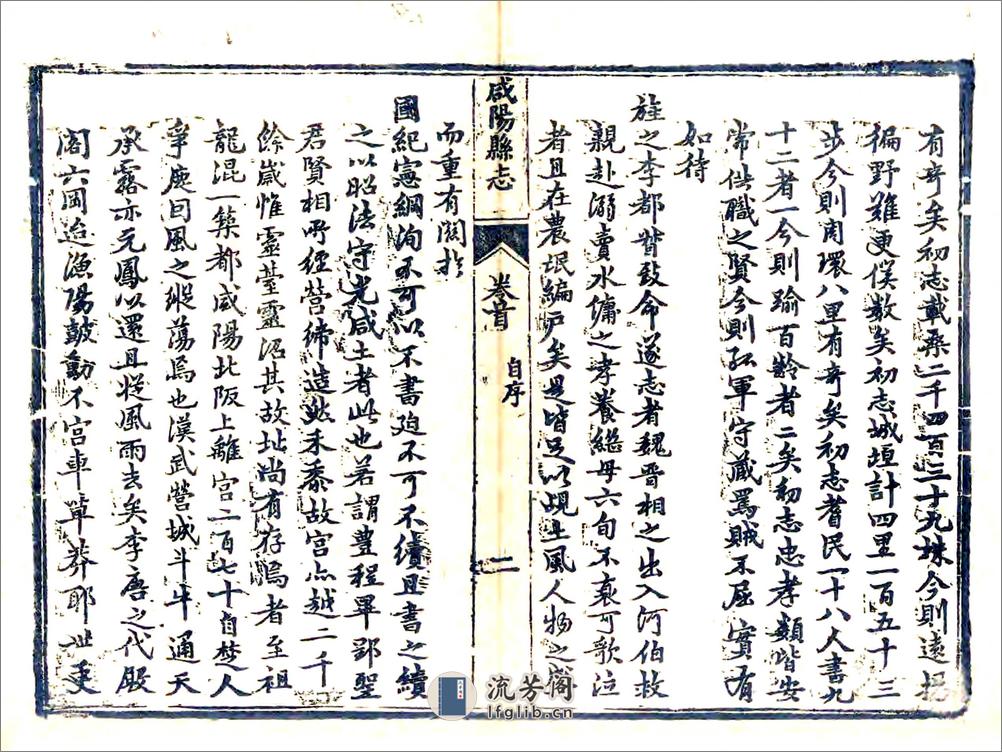 有奇矣初志載桑二千四百三十九株今則遠揚
徧野難更僕數矣初志城垣計四里一百五十三
步今則周環八里有奇矣初志耆民一十八人書九
十二者一今則踰百齡者二矣初志忠孝類皆安
常供職之賢今則孤軍守藏罵賊不屈實有
如待
旌之李都督致命遂志者魏晋相之出入河伯救
親赴溺賣水傭之孝養繼母六旬不衰可歌泣
者且在農氓編戶矣是皆足以覘土風人物之
而重有關於
國紀憲綱洵不可以不書廹不可不續且書之續
之以昭法守光咸土者此也若謂豊程畢郢聖
君賢相所經營締造然禾黍故宮亦越二千
餘歲惟靈䑓靈沼其故址尚有存焉者至祖
龍混一築都咸陽北阪上離宮二百七十自楚人
爭庚回風之縱蕩焉也漢武營城斗牛通天
承露亦元鳳以還且從風雨去矣李唐之代殿
閣六岡迨漁陽鼓動不宮車草莽耶世
咸陽縣志
卷首
自序
二
流芳阁
lfglib.cn